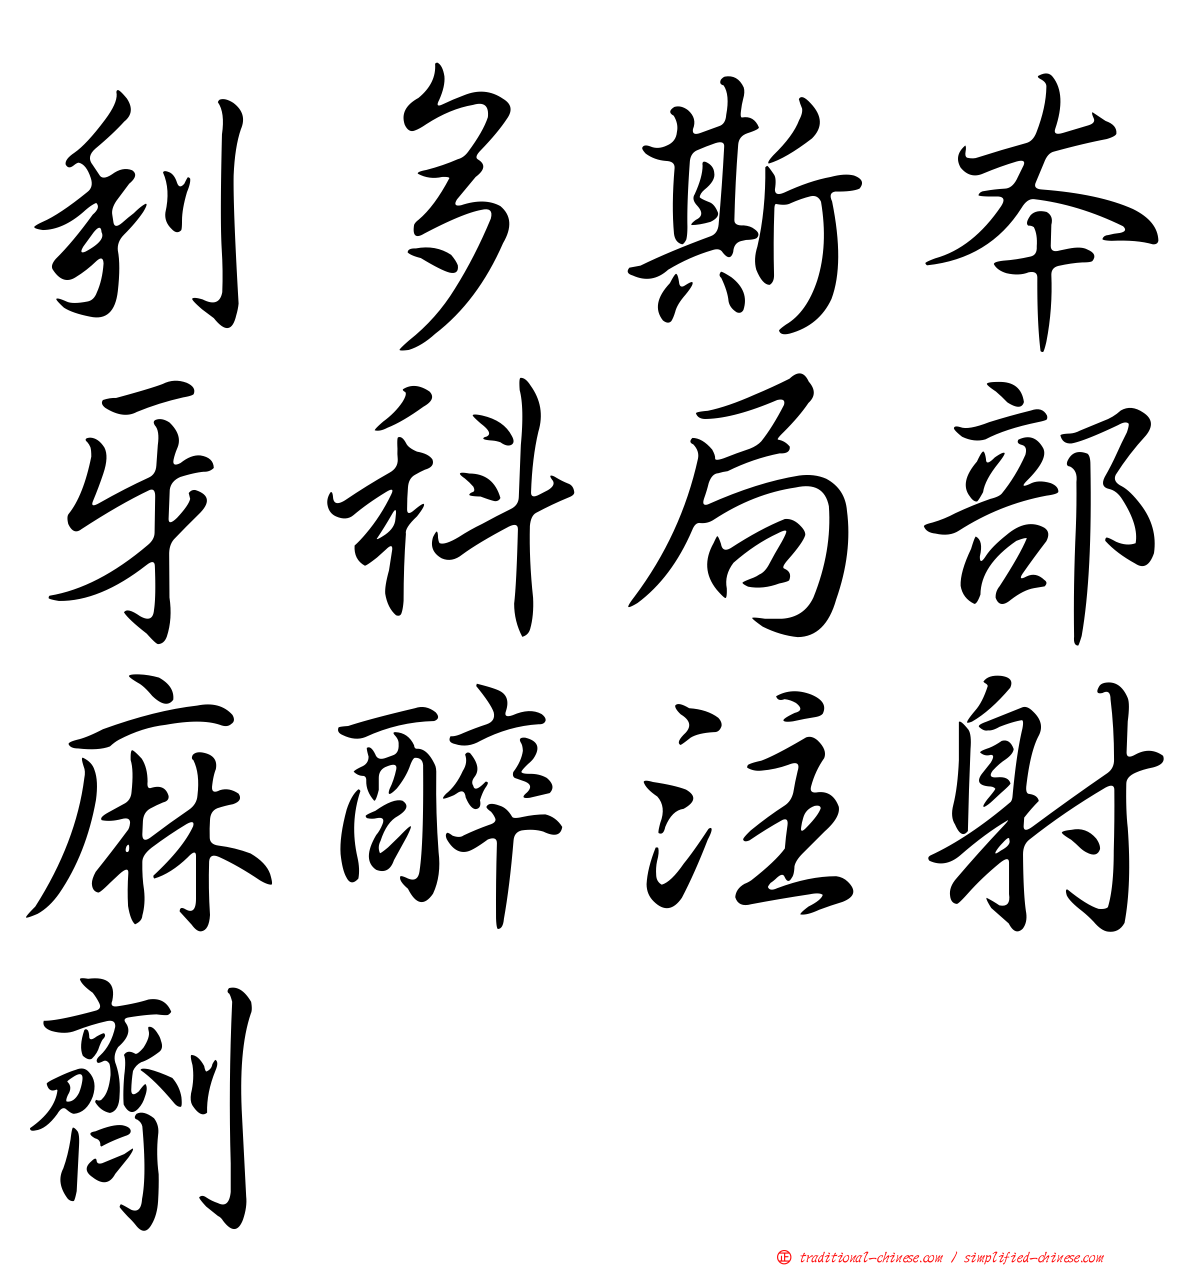 利多斯本
牙科局部
麻醉注射
劑
正 traditional-chinese.com / simplified-chinese.com